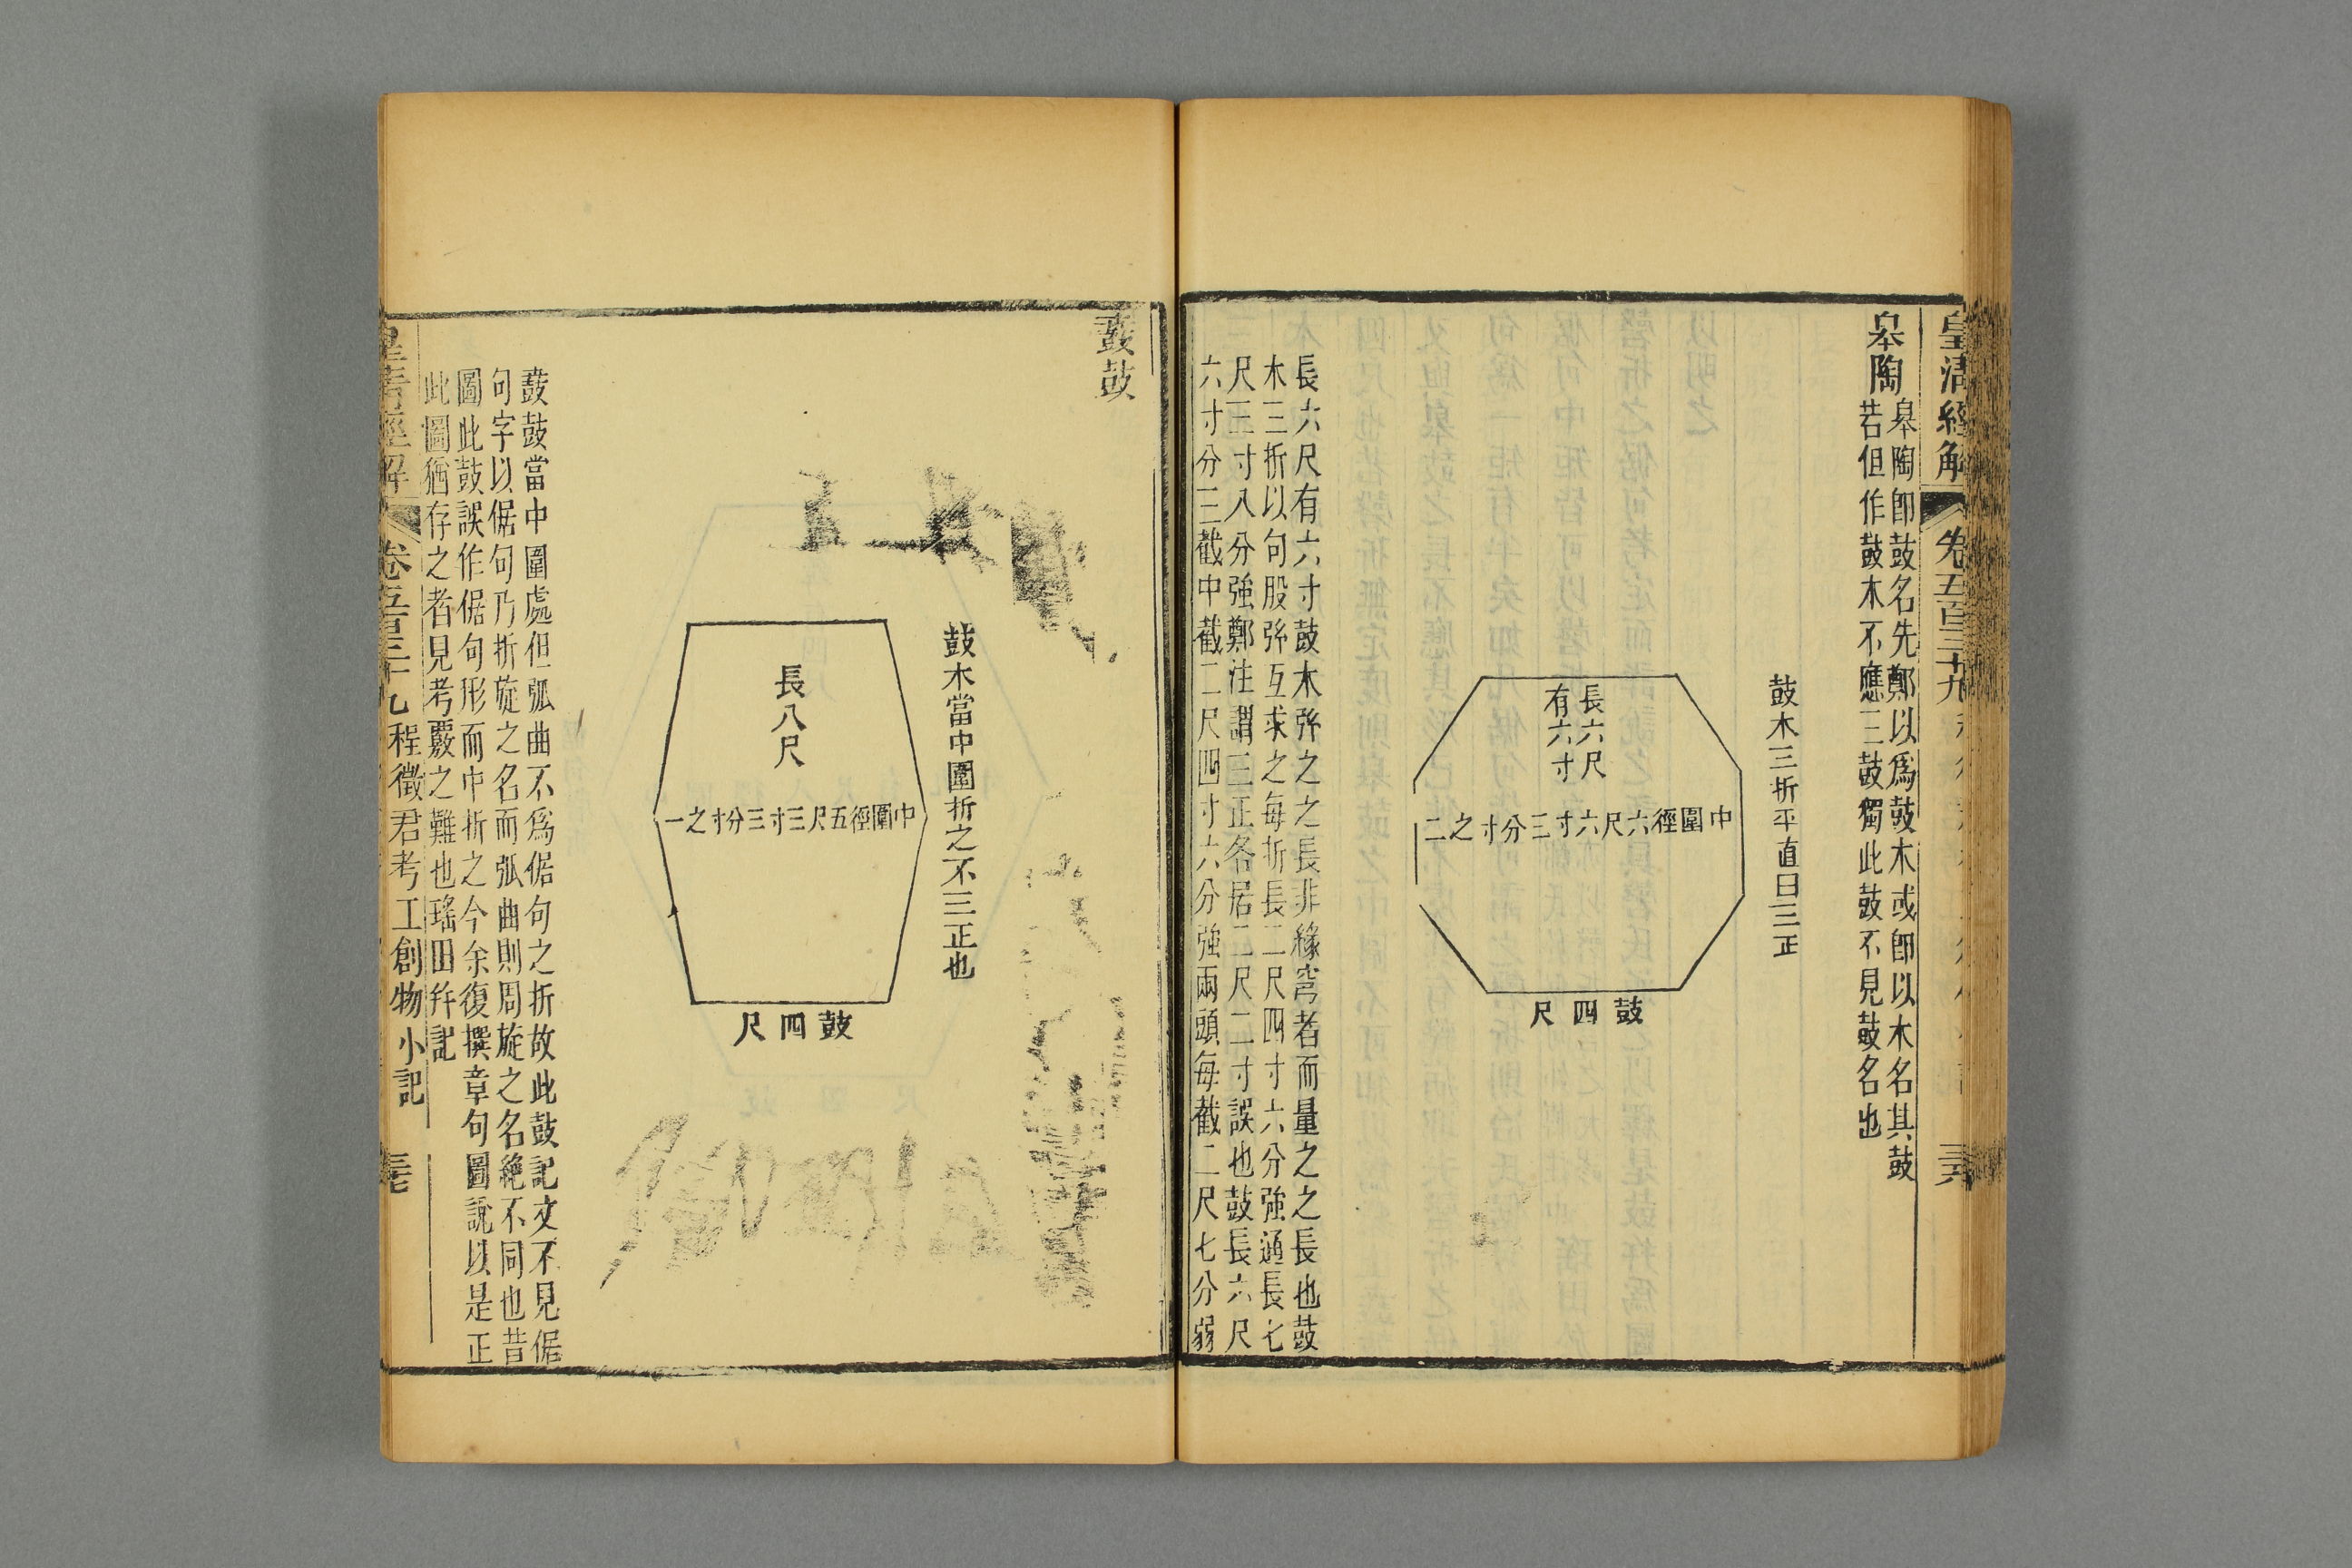 皇清經解
卷五百三十九
三六
皋陶
皋陶卽鼓名先鄭以爲鼓木或卽以木名其鼓
若但作鼓木不應三鼓獨此鼓不見鼓名也
鼓木三折平直曰三正
長六尺
有六寸
中圍徑六尺六寸三分寸之二
鼓四尺
長六尺有六寸鼓木弥之之長非緣穹者而量之之長也鼓
木三折以句股弥互求之每折長二尺四寸六分強通長七
尺三寸八分強鄭注謂三正各居二尺二寸誤也鼓長六尺
六寸分三截中截二尺四寸六分強兩頭每截二尺七分弱
鼖鼓
鼓木當中圍折之不三正也
長八尺
中圍徑五尺三寸三分寸之一
鼓四尺
鼖鼓當中圍處但弧曲不爲倨句之折故此鼓記文不見倨
句字以倨句乃折旋之名而弧曲則周旋之名絶不同也昔
圖此鼓誤作倨句形而中折之今余復撰章句圖說以是正
此圖猶存之者見考覈之難也瑤田幷記
皇清經解
卷五百三十九
程徵君考工創物小記
三七